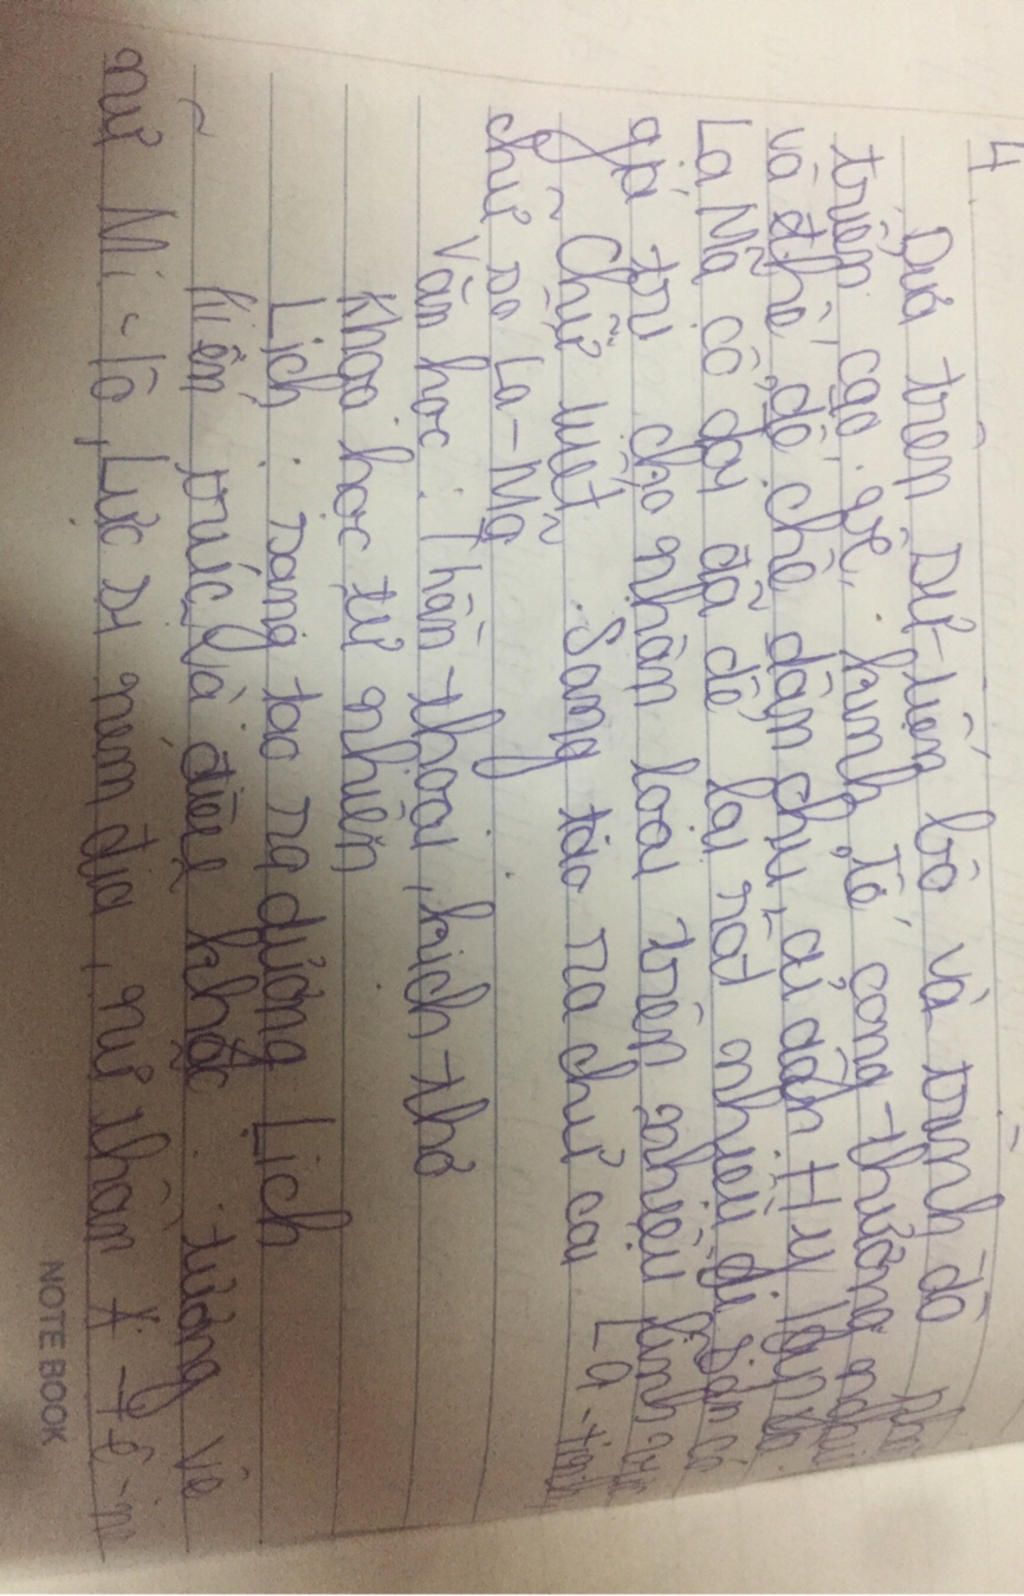 4
Dựa trên sự tiến bộ và trình độ phát
triển cao về kinh tế công thương nghiệp
và thể chế dân chủ, cư dân Hy Lạp và
La Mã cổ đại đã để lại rất nhiều di sản có
giá trị cho nhân loại trên nhiều lĩnh vực
Chữ viết : Sáng tạo ra chữ cái La-tinh,
chữ số La-Mã
Văn học : Thần thoại, kịch thơ
Khoa học tự nhiên
Lịch : sáng tạo ra dương Lịch
Kiến trúc và điêu khắc : tượng vệ
nữ Mi-lô, Lực sĩ ném đĩa, nữ thần A-tê-n
NOTE BOOK